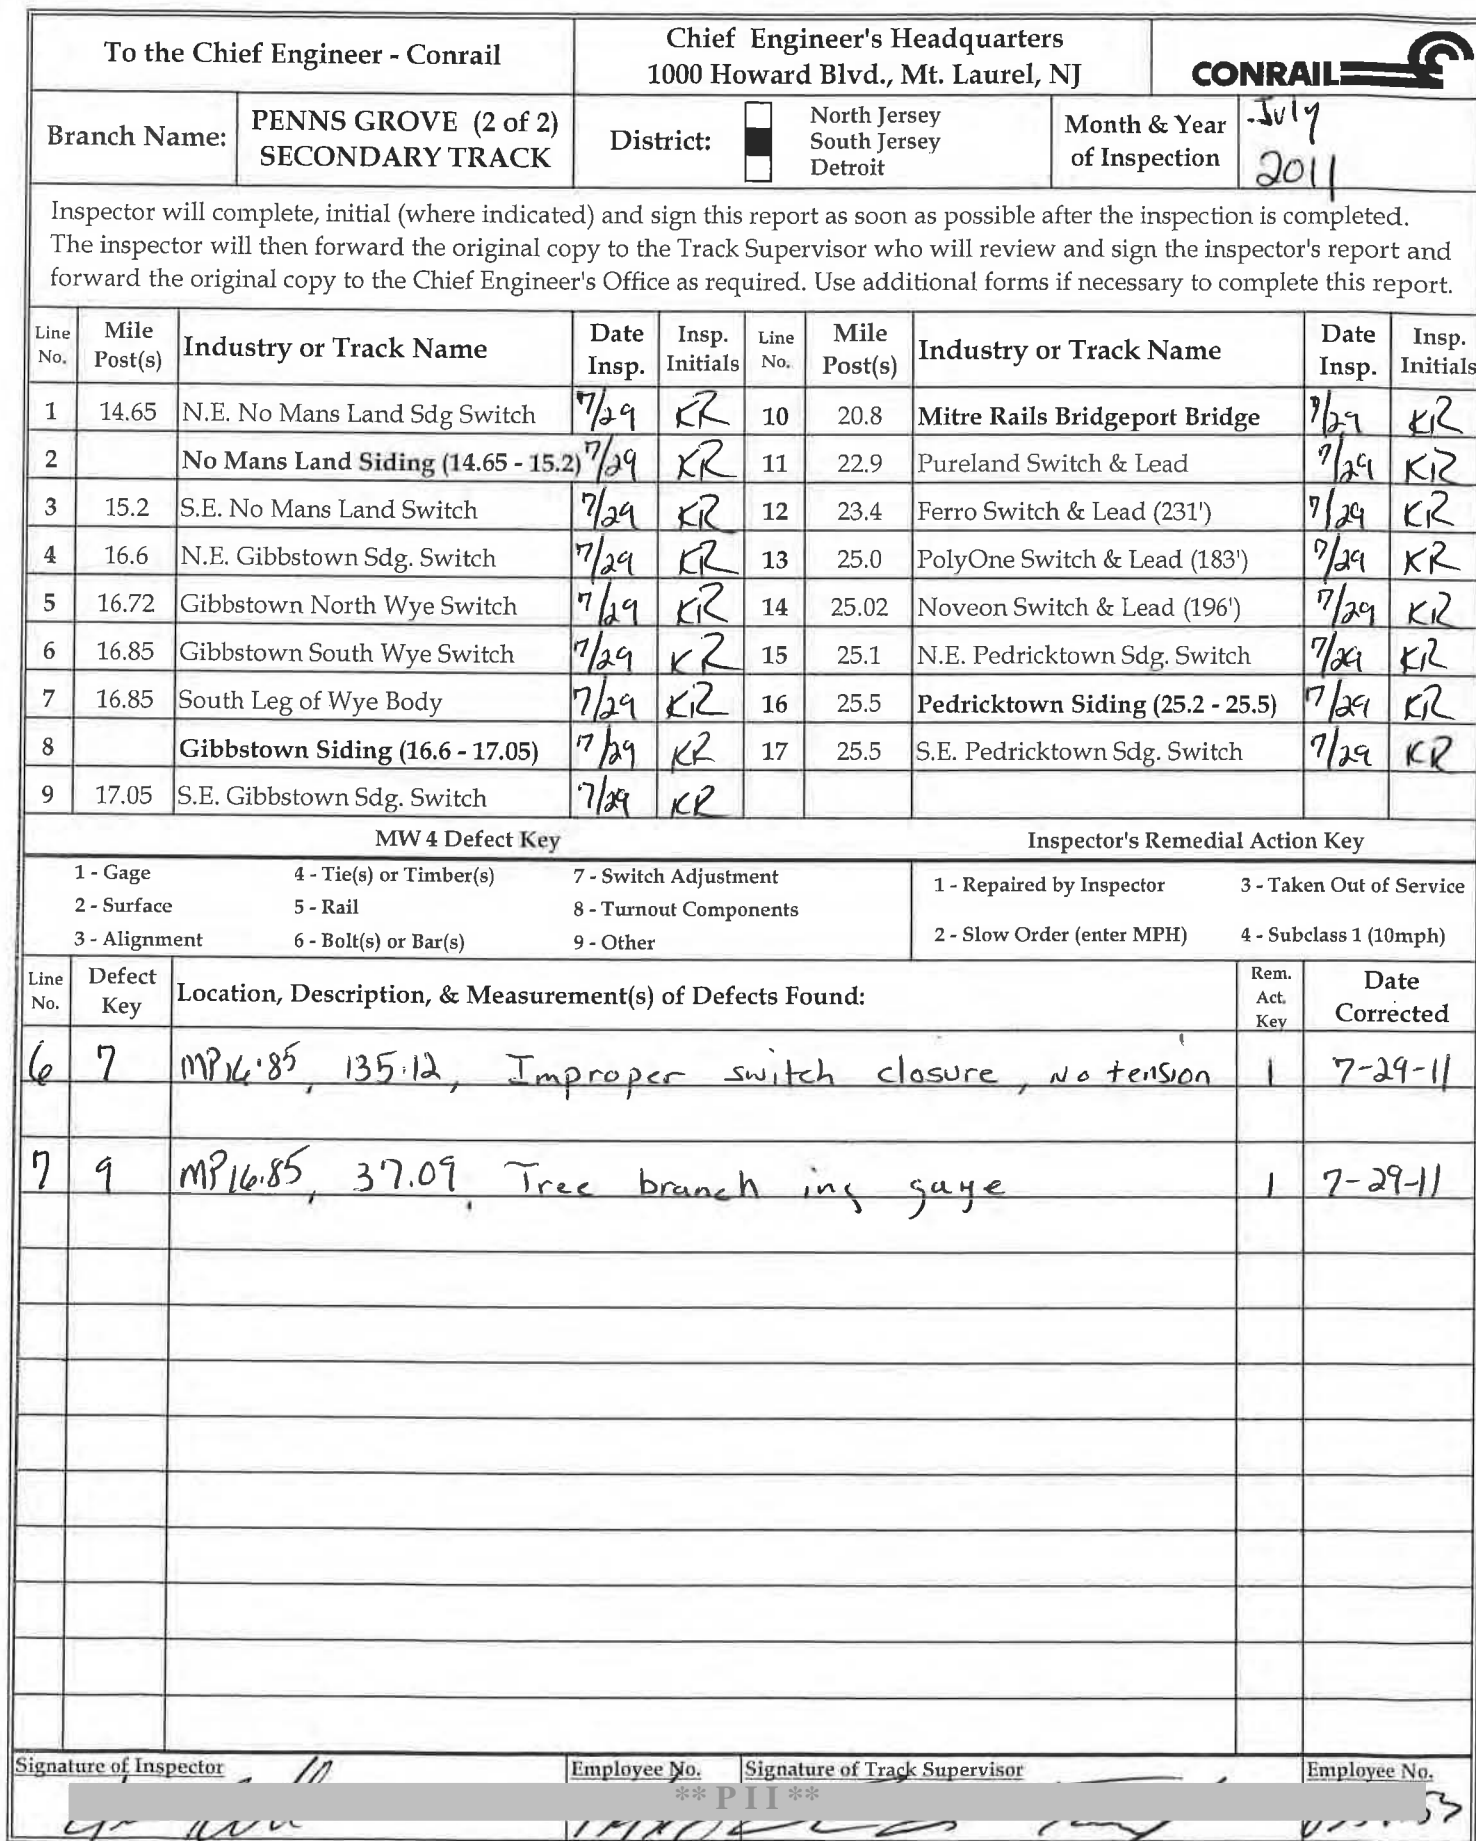 To the Chief Engineer - Conrail
Chief Engineer's Headquarters
1000 Howard Blvd., Mt. Laurel, NJ
CONRAIL
Branch Name:
PENNS GROVE (2 of 2)
SECONDARY TRACK
District:
North Jersey
South Jersey
Detroit
Month & Year
of Inspection
July
2011
Inspector will complete, initial (where indicated) and sign this report as soon as possible after the inspection is completed.
The inspector will then forward the original copy to the Track Supervisor who will review and sign the inspector's report and
forward the original copy to the Chief Engineer's Office as required. Use additional forms if necessary to complete this report.
Line No. Mile Post(s) Industry or Track Name Date Insp. Insp. Initials Line No. Mile Post(s) Industry or Track Name Date Insp. Insp. Initials
1 14.65 N.E. No Mans Land Sdg Switch 7/29 KR 10 20.8 Mitre Rails Bridgeport Bridge 7/29 KR
2 No Mans Land Siding (14.65 - 15.2) 7/29 KR 11 22.9 Pureland Switch & Lead 7/29 KR
3 15.2 S.E. No Mans Land Switch 7/29 KR 12 23.4 Ferro Switch & Lead (231') 7/29 KR
4 16.6 N.E. Gibbstown Sdg. Switch 7/29 KR 13 25.0 PolyOne Switch & Lead (183') 7/29 KR
5 16.72 Gibbstown North Wye Switch 7/29 KR 14 25.02 Noveon Switch & Lead (196') 7/29 KR
6 16.85 Gibbstown South Wye Switch 7/29 KR 15 25.1 N.E. Pedricktown Sdg. Switch 7/29 KR
7 16.85 South Leg of Wye Body 7/29 KR 16 25.5 Pedricktown Siding (25.2 - 25.5) 7/29 KR
8 Gibbstown Siding (16.6 - 17.05) 7/29 KR 17 25.5 S.E. Pedricktown Sdg. Switch 7/29 KR
9 17.05 S.E. Gibbstown Sdg. Switch 7/29 KR
MW 4 Defect Key Inspector's Remedial Action Key
1 - Gage 4 - Tie(s) or Timber(s) 7 - Switch Adjustment 1 - Repaired by Inspector 3 - Taken Out of Service
2 - Surface 5 - Rail 8 - Turnout Components
3 - Alignment 6 - Bolt(s) or Bar(s) 9 - Other 2 - Slow Order (enter MPH) 4 - Subclass 1 (10mph)
Line No. Defect Key Location, Description, & Measurement(s) of Defects Found: Rem. Act. Key Date Corrected
6 7 MP16.85, 135.12, Improper switch closure, No tension 1 7-29-11
7 9 MP16.85, 37.09, Tree branch ing gage 1 7-29-11
Signature of Inspector Employee No. Signature of Track Supervisor Employee No.
** P I I **